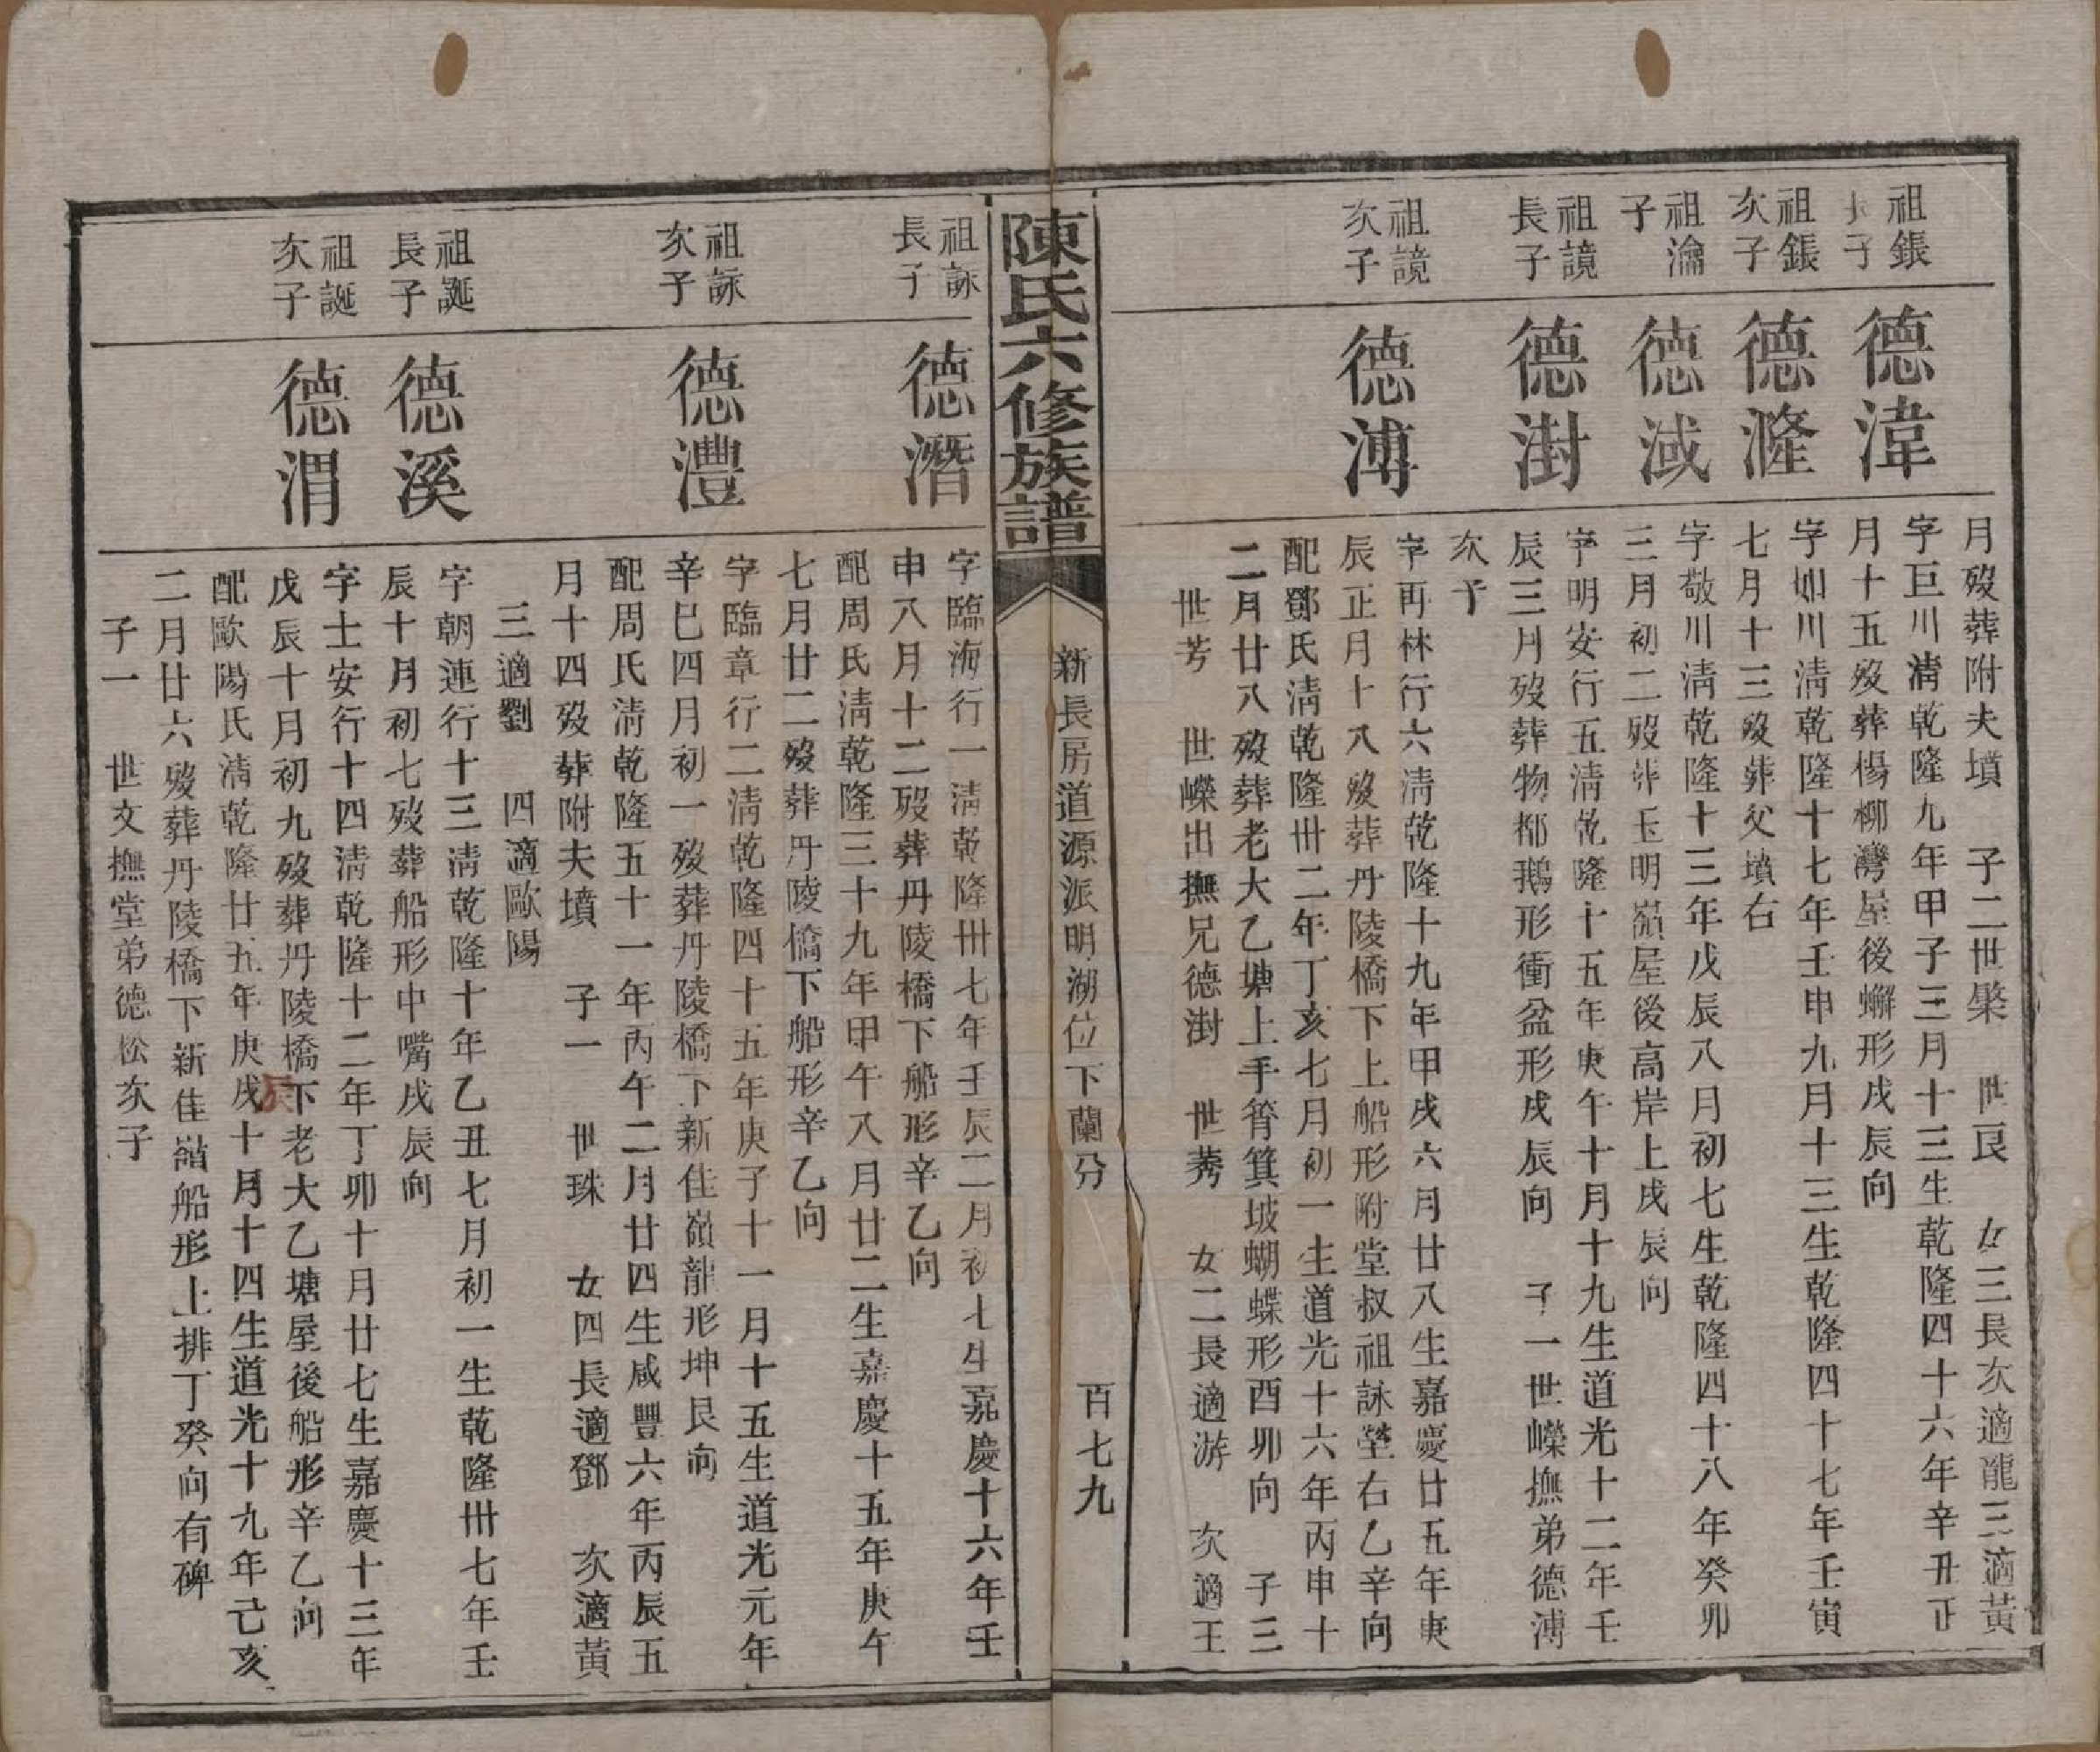 月歿葬附夫墳　子二世榘　世艮　女三長次適龍三適黃
祖鋹
長子
德湋
字巨川清乾隆九年甲子三月十三生乾隆四十六年辛丑正
月十五歿葬楊柳灣屋後蠏形戌辰向
祖鋹
次子
德漋
字如川清乾隆十七年壬申九月十三生乾隆四十七年壬寅
七月十三歿葬父墳右
祖瀹
子
德淢
字敬川清乾隆十三年戊辰八月初七生乾隆四十八年癸卯
三月初二歿葬玉明嶺屋後高岸上戌辰向
祖謮
長子
德澍
字明安行五清乾隆十五年庚午十月十九生道光十二年壬
辰三月歿葬物都鵝形衝盆形戌辰向　子一世嶸撫弟德溥
次子
祖謮
次子
德溥
字再林行六清乾隆十九年甲戌六月廿八生嘉慶廿五年庚
辰正月十八歿葬丹陵橋下上船形附堂叔祖詠塋右乙辛向
配鄧氏清乾隆卅二年丁亥七月初一生道光十六年丙申十
二月廿八歿葬老大乙塘上手筲箕坡蝴蝶形酉卯向　子三
世芳　世嶸出撫兄德澍　世莠　女二長適游　次適王
陳氏六修族譜
新長房道源派明湖位下蘭分
百七九
祖詠
長子
德潛
字臨海行一清乾隆卅七年壬辰二月初七生嘉慶十六年壬
申八月十二歿葬丹陵橋下船形辛乙向
配周氏清乾隆三十九年甲午八月廿二生嘉慶十五年庚午
七月廿二歿葬丹陵橋下船形辛乙向
祖詠
次子
德灃
字臨章行二清乾隆四十五年庚子十一月十五生道光元年
辛巳四月初一歿葬丹陵橋下新佳嶺龍形坤艮向
配周氏清乾隆五十一年丙午二月廿四生咸豐六年丙辰五
月十四歿葬附夫墳　子一　世珠　女四長適鄧　次適黃
三適劉　四適歐陽
祖誕
長子
德溪
字朝連行十三清乾隆十年乙丑七月初一生乾隆卅七年壬
辰十月初七歿葬船形中嘴戌辰向
祖誕
次子
德渭
字士安行十四清乾隆十二年丁卯十月廿七生嘉慶十三年
戊辰十月初九歿葬丹陵橋下老大乙塘屋後船形辛乙向
配歐陽氏清乾隆廿五年庚戌辰十月十四生道光十九年己亥
二月廿六歿葬丹陵橋下新佳嶺船形上排丁癸向有碑
子一　世文撫堂弟德松次子